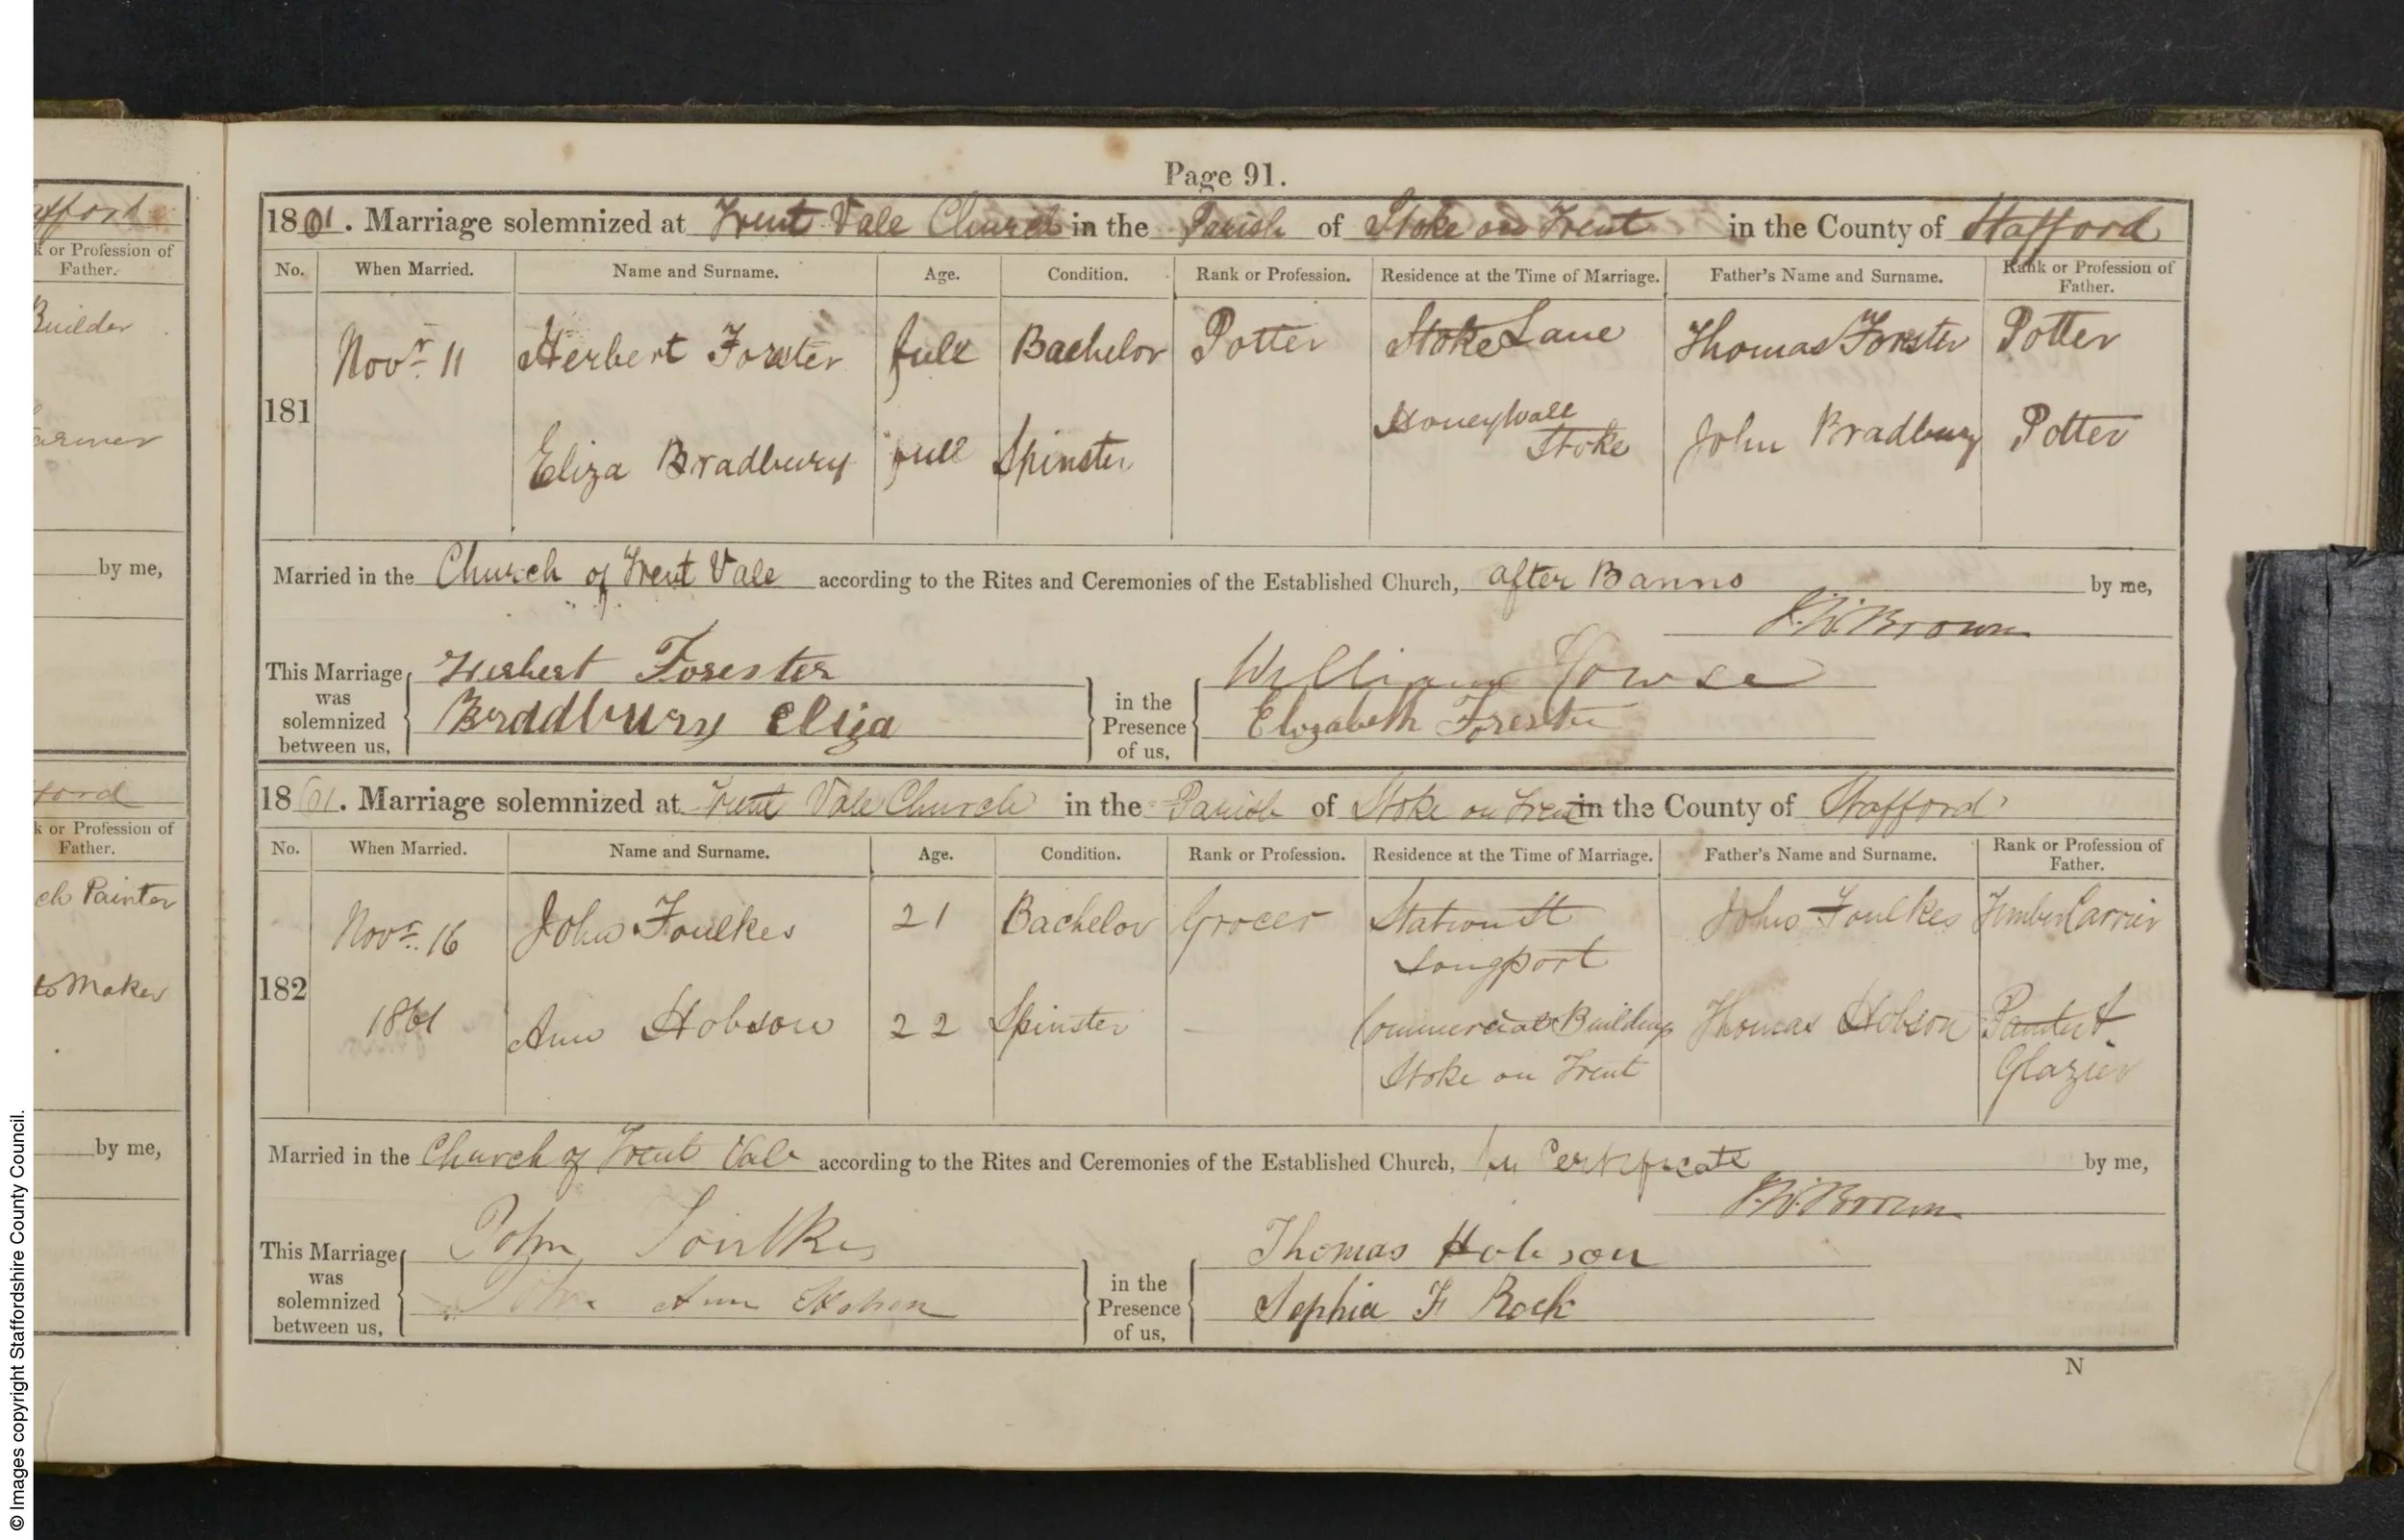 Page 91.
1861. Marriage solemnized at Trent Vale Church in the Parish of Stoke on Trent in the County of Stafford
No. When Married. Name and Surname. Age. Condition. Rank or Profession. Residence at the Time of Marriage. Father's Name and Surname. Rank or Profession of Father.
181 Novr 11 Herbert Forster full Bachelor Potter Stoke Lane Thomas Forster Potter
Eliza Bradbury full Spinster Honeywall Stoke John Bradbury Potter
Married in the Church of Trent Vale according to the Rites and Ceremonies of the Established Church, after Banns by me,
Brown
This Marriage was solemnized between us, Herbert Forester
Bradbury Eliza
in the Presence of us, William Howse
Elizabeth Forester
1861. Marriage solemnized at Trent Vale Church in the Parish of Stoke on Trent in the County of Stafford
No. When Married. Name and Surname. Age. Condition. Rank or Profession. Residence at the Time of Marriage. Father's Name and Surname. Rank or Profession of Father.
182 Novr. 16 1861 John Foulkes 21 Bachelor Grocer Station St Longport John Foulkes Timber Carrier
Ann Hobson 22 Spinster — Commercial Buildings Stoke on Trent Thomas Hobson Painter & Glazier
Married in the Church of Trent Vale according to the Rites and Ceremonies of the Established Church, by Certificate by me,
Brown
This Marriage was solemnized between us, John Foulkes
Ann Hobson
in the Presence of us, Thomas Hobson
Sophia F Rock
N
afford
k or Profession of Father.
Builder
armer
by me,
ford
k or Profession of Father.
ch Painter
to Maker
by me,
© Images copyright Staffordshire County Council.